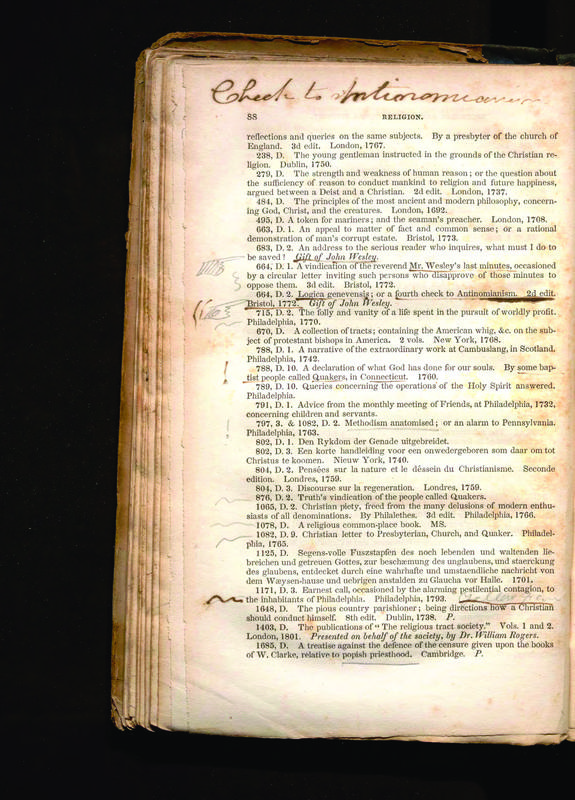 Check to Antinomianism
88 RELIGION.
reflections and queries on the same subjects. By a presbyter of the church of
England. 3d edit. London, 1767.
238, D. The young gentleman instructed in the grounds of the Christian re-
ligion. Dublin, 1750.
279, D. The strength and weakness of human reason; or the question about
the sufficiency of reason to conduct mankind to religion and future happiness,
argued between a Deist and a Christian. 2d edit. London, 1737.
484, D. The principles of the most ancient and modern philosophy, concern-
ing God, Christ, and the creatures. London, 1692.
495, D. A token for mariners; and the seaman's preacher. London, 1708.
663, D. 1. An appeal to matter of fact and common sense; or a rational
demonstration of man's corrupt estate. Bristol, 1773.
683, D. 2. An address to the serious reader who inquires, what must I do to
be saved! Gift of John Wesley.
664, D. 1. A vindication of the reverend Mr. Wesley's last minutes, occasioned
by a circular letter inviting such persons who disapprove of those minutes to
oppose them. 3d edit. Bristol, 1772.
664, D. 2. Logica genevensis; or a fourth check to Antinomianism. 2d edit.
Bristol, 1772. Gift of John Wesley.
715, D. 2. The folly and vanity of a life spent in the pursuit of worldly profit.
Philadelphia, 1770.
670, D. A collection of tracts; containing the American whig, &c. on the sub-
ject of protestant bishops in America. 2 vols. New York, 1768.
788, D. 1. A narrative of the extraordinary work at Cambuslang, in Scotland.
Philadelphia, 1742.
788, D. 10. A declaration of what God has done for our souls. By some bap-
tist people called Quakers, in Connecticut. 1760.
789, D. 10. Queries concerning the operations of the Holy Spirit answered.
Philadelphia.
791, D. 1. Advice from the monthly meeting of Friends, at Philadelphia, 1732,
concerning children and servants.
797, 3. & 1082, D. 2. Methodism anatomised; or an alarm to Pennsylvania.
Philadelphia, 1763.
802, D. 1. Den Rykdom der Genade uitgebreidet.
802, D. 3. Een korte handleiding voor een onwedergeboren som daar om tot
Christus te koomen. Nieuw York, 1740.
804, D. 2. Pensées sur la nature et le déssein du Christianisme. Seconde
edition. Londres, 1759.
804, D. 3. Discourse sur la regeneration. Londres, 1759.
876, D. 2. Truth's vindication of the people called Quakers.
1065, D. 2. Christian piety, freed from the many delusions of modern enthu-
siasts of all denominations. By Philalethes. 3d edit. Philadelphia, 1766.
1078, D. A religious common-place book. MS.
1082, D. 9. Christian letter to Presbyterian, Church, and Qunker. Philadel-
phia, 1765.
1125, D. Segens-volle Fuszstapfen des noch lebenden und waltenden lie-
breichen und getreuen Gottes, zur beschæmung des unglaubens, und staerckung
des glaubens, entdecket durch eine wahrhafte und umstaendliche nachricht von
dem Wæysen-hause und uebrigen anstalden zu Glaucha vor Halle. 1701.
1171, D. 3. Earnest call, occasioned by the alarming pestilential contagion, to
the inhabitants of Philadelphia. Philadelphia, 1793.
1648, D. The pious country parishioner; being directions how a Christian
should conduct himself. 8th edit. Dublin, 1738. P.
1403, D. The publications of "The religious tract society." Vols. 1 and 2.
London, 1801. Presented on behalf of the society, by Dr. William Rogers.
1685, D. A treatise against the defence of the censure given upon the books
of W. Clarke, relative to popish priesthood. Cambridge. P.